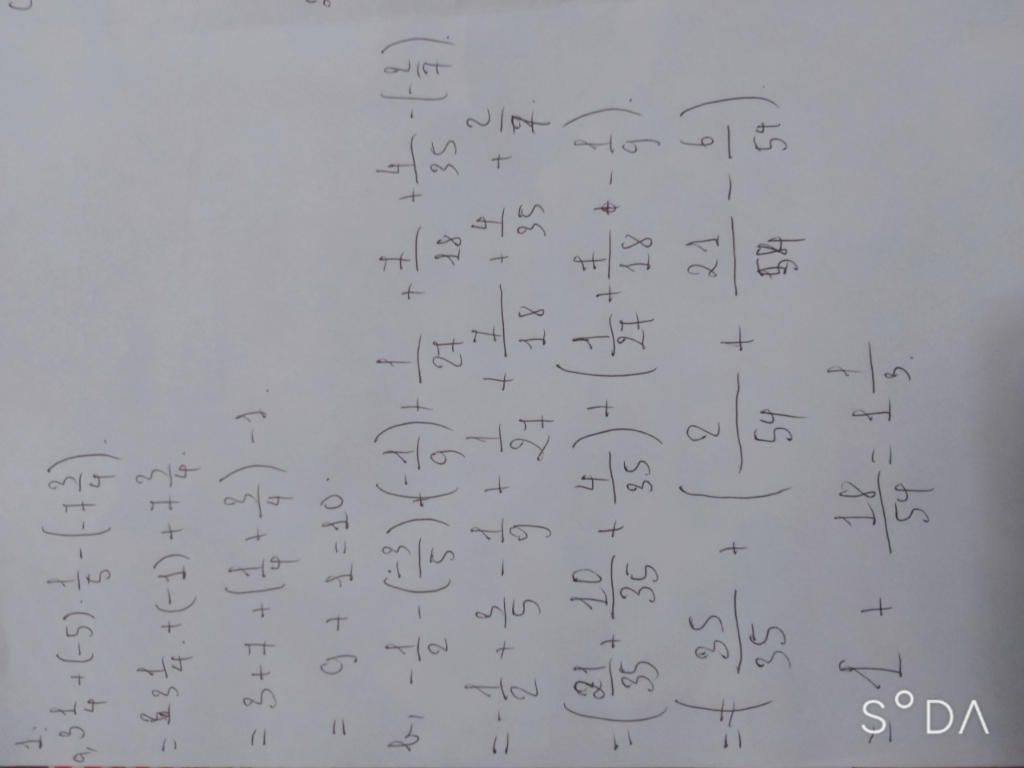 1.
a, 3 1/4 + (-5) · 1/5 - (-7 3/4).
= 3 1/4 + (-1) + 7 3/4.
= 3 + 7 + (1/4 + 3/4) - 1.
= 9 + 1 = 10.
b, -1/2 - (-3/5) + (-1/9) + 1/27 + 7/18 + 4/35 - (-2/7).
= -1/2 + 3/5 - 1/9 + 1/27 + 7/18 + 4/35 + 2/7.
= (21/35 + 10/35 + 4/35) + (1/27 + 7/18 - 1/9).
= (35/35 + (2/54 + 21/54 - 6/54)
= 1 + 18/54 = 1 1/3.
S°DΛ